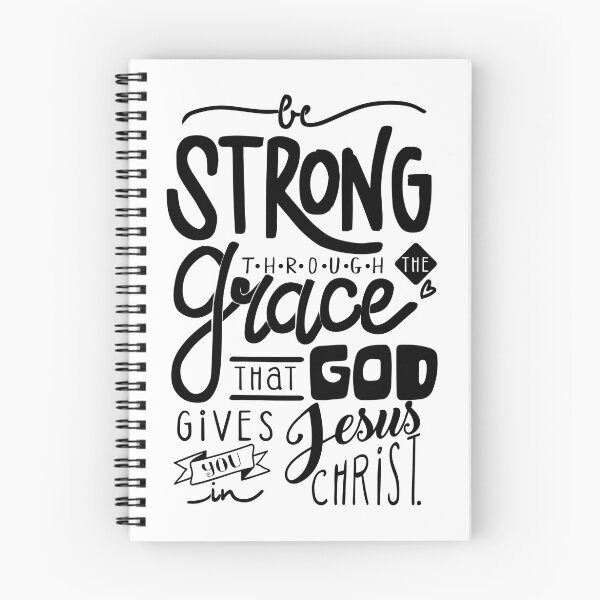 be
STRONG
T·H·R·O·U·G·H THE
grace
THAT GOD
GIVES
YOU
in
Jesus
CHRIST.